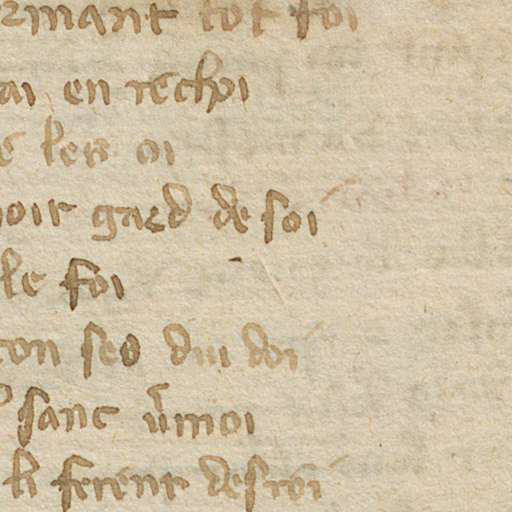 rmant tot foi
ai en rechoi
les oi
noir gard de soi
le foi
ton seo dui doi
sanc v̄moi
li ferent desroi